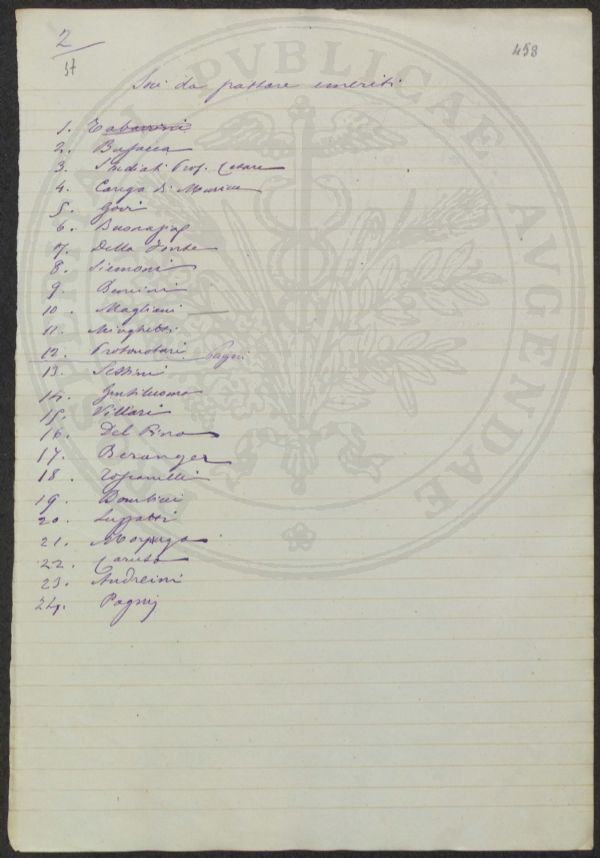 2
57
458
Soci da passare emeriti
1. Tabarrini
2. Bufacca
3. Studiati Prof. Cesare
4. Carega di Muricce
5. Govi
6. Buonapag
7. Della Fonte
8. Siemoni
9. Bencini
10. Magliani
11. Minghetti
12. Protonotari Pagni
13. Sestini
14. Gentiluomo
15. Villari
16. Del Pino
17. Beranger
18. Toscanelli
19. Bombicci
20. Luzzatti
21. Morpurgo
22. Caruso
23. Andreini
24. Pagnij
PVBLICAE
AVGENDAE